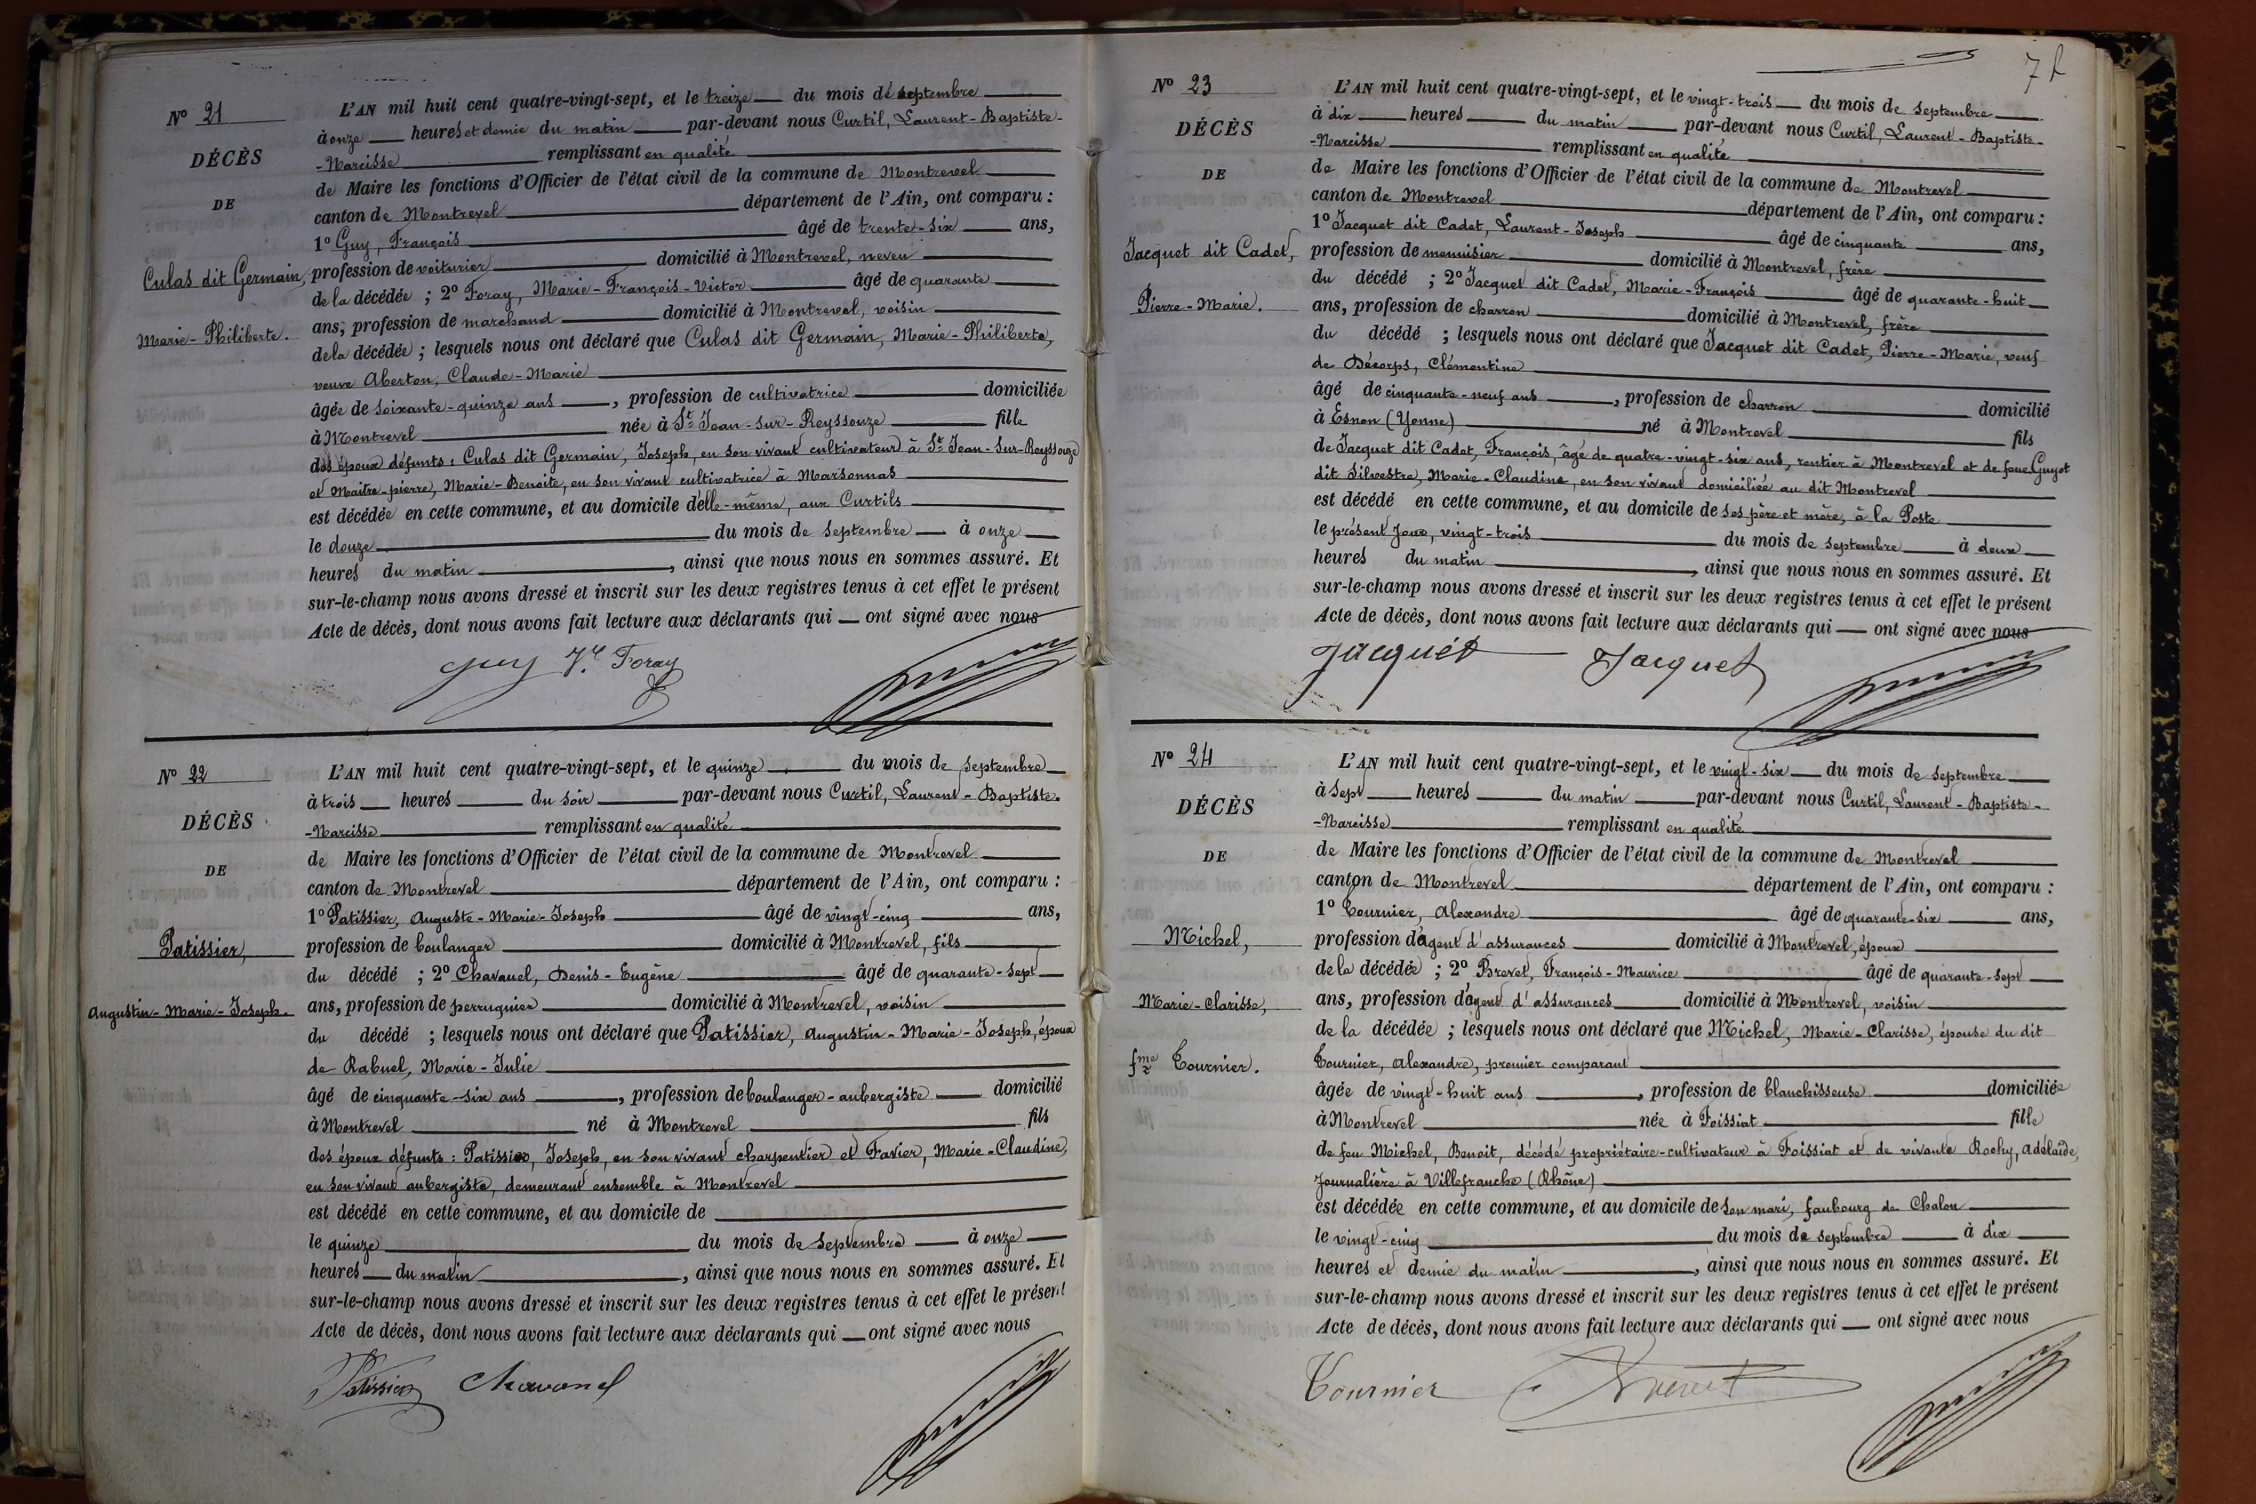 Nº 21
DÉCÈS
DE
Culas dit Germain,
Marie-Philiberte.
L'AN mil huit cent quatre-vingt-sept, et le treize du mois de septembre
à onze heures et demie du matin par-devant nous Curtil, Laurent-Baptiste-
-Narcisse remplissant en qualité
de Maire les fonctions d'Officier de l'état civil de la commune de Montrevel
canton de Montrevel département de l'Ain, ont comparu :
1º Guy, François âgé de trente-six ans,
profession de voiturier domicilié à Montrevel, neveu
de la décédée ; 2º Foray, Marie-François-Victor âgé de quarante
ans, profession de marchand domicilié à Montrevel, voisin
de la décédée ; lesquels nous ont déclaré que Culas dit Germain, Marie-Philiberte,
veuve Aberton, Claude-Marie
âgée de soixante-quinze ans , profession de cultivatrice domiciliée
à Montrevel née à St-Jean-sur-Reyssouze fille
des époux défunts : Culas dit Germain, Joseph, en son vivant cultivateur à St-Jean-sur-Reyssouze
et Maitre-pierre, Marie-Benoite, en son vivant cultivatrice à Marsonnas
est décédée en cette commune, et au domicile d'elle-même, aux Curtils
le douze du mois de septembre à onze
heures du matin , ainsi que nous nous en sommes assuré. Et
sur-le-champ nous avons dressé et inscrit sur les deux registres tenus à cet effet le présent
Acte de décès, dont nous avons fait lecture aux déclarants qui ont signé avec nous
Guy Foray
Nº 22
DÉCÈS
DE
Patissier,
Augustin-Marie-Joseph.
L'AN mil huit cent quatre-vingt-sept, et le quinze du mois de septembre
à trois heures du soir par-devant nous Curtil, Laurent-Baptiste-
-Narcisse remplissant en qualité
de Maire les fonctions d'Officier de l'état civil de la commune de Montrevel
canton de Montrevel département de l'Ain, ont comparu :
1º Patissier, Auguste-Marie-Joseph âgé de vingt-cinq ans,
profession de boulanger domicilié à Montrevel, fils
du décédé ; 2º Chavanel, Denis-Eugène âgé de quarante-sept
ans, profession de perruquier domicilié à Montrevel, voisin
du décédé ; lesquels nous ont déclaré que Patissier, Augustin-Marie-Joseph, époux
de Rabuel, Marie-Julie
âgé de cinquante-six ans , profession de boulanger-aubergiste domicilié
à Montrevel né à Montrevel fils
des époux défunts : Patissier, Joseph, en son vivant charpentier et Favier, Marie-Claudine,
en son vivant aubergiste, demeurant ensemble à Montrevel
est décédé en cette commune, et au domicile de
le quinze du mois de septembre à onze
heures du matin , ainsi que nous nous en sommes assuré. Et
sur-le-champ nous avons dressé et inscrit sur les deux registres tenus à cet effet le présent
Acte de décès, dont nous avons fait lecture aux déclarants qui ont signé avec nous
Patissier Chavanel
Nº 23
DÉCÈS
DE
Jacquet dit Cadet,
Pierre-Marie.
L'AN mil huit cent quatre-vingt-sept, et le vingt-trois du mois de septembre
à dix heures du matin par-devant nous Curtil, Laurent-Baptiste-
-Narcisse remplissant en qualité
de Maire les fonctions d'Officier de l'état civil de la commune de Montrevel
canton de Montrevel département de l'Ain, ont comparu :
1º Jacquet dit Cadet, Laurent-Joseph âgé de cinquante ans,
profession de menuisier domicilié à Montrevel, frère
du décédé ; 2º Jacquet dit Cadet, Marie-François âgé de quarante-huit
ans, profession de charron domicilié à Montrevel, frère
du décédé ; lesquels nous ont déclaré que Jacquet dit Cadet, Pierre-Marie, veuf
de Décorps, Clémentine
âgé de cinquante-neuf ans , profession de charron domicilié
à Esnon (Yonne) né à Montrevel fils
de Jacquet dit Cadet, François, âgé de quatre-vingt-six ans, rentier à Montrevel et de feue Guyot
dit Silvestre, Marie-Claudine, en son vivant domiciliée au dit Montrevel
est décédé en cette commune, et au domicile de ses père et mère, à la Poste
le présent jour, vingt-trois du mois de septembre à deux
heures du matin , ainsi que nous nous en sommes assuré. Et
sur-le-champ nous avons dressé et inscrit sur les deux registres tenus à cet effet le présent
Acte de décès, dont nous avons fait lecture aux déclarants qui ont signé avec nous
Jacquet Jacquet
Nº 24
DÉCÈS
DE
Michel,
Marie-Clarisse,
fme Tournier.
L'AN mil huit cent quatre-vingt-sept, et le vingt-six du mois de septembre
à sept heures du matin par-devant nous Curtil, Laurent-Baptiste-
-Narcisse remplissant en qualité
de Maire les fonctions d'Officier de l'état civil de la commune de Montrevel
canton de Montrevel département de l'Ain, ont comparu :
1º Tournier, Alexandre âgé de quarante-six ans,
profession d'agent d'assurances domicilié à Montrevel, époux
de la décédée ; 2º Brevet, François-Maurice âgé de quarante-sept
ans, profession d'agent d'assurances domicilié à Montrevel, voisin
de la décédée ; lesquels nous ont déclaré que Michel, Marie-Clarisse, épouse du dit
Tournier, Alexandre, premier comparant
âgée de vingt-huit ans , profession de blanchisseuse domiciliée
à Montrevel née à Foissiat fille
de feu Michel, Benoit, décédé propriétaire-cultivateur à Foissiat et de vivante Rochy, Adélaïde,
journalière à Villefranche (Rhône)
est décédée en cette commune, et au domicile de son mari, faubourg de Chalon
le vingt-cinq du mois de septembre à dix
heures et demie du matin , ainsi que nous nous en sommes assuré. Et
sur-le-champ nous avons dressé et inscrit sur les deux registres tenus à cet effet le présent
Acte de décès, dont nous avons fait lecture aux déclarants qui ont signé avec nous
Tournier Brevet